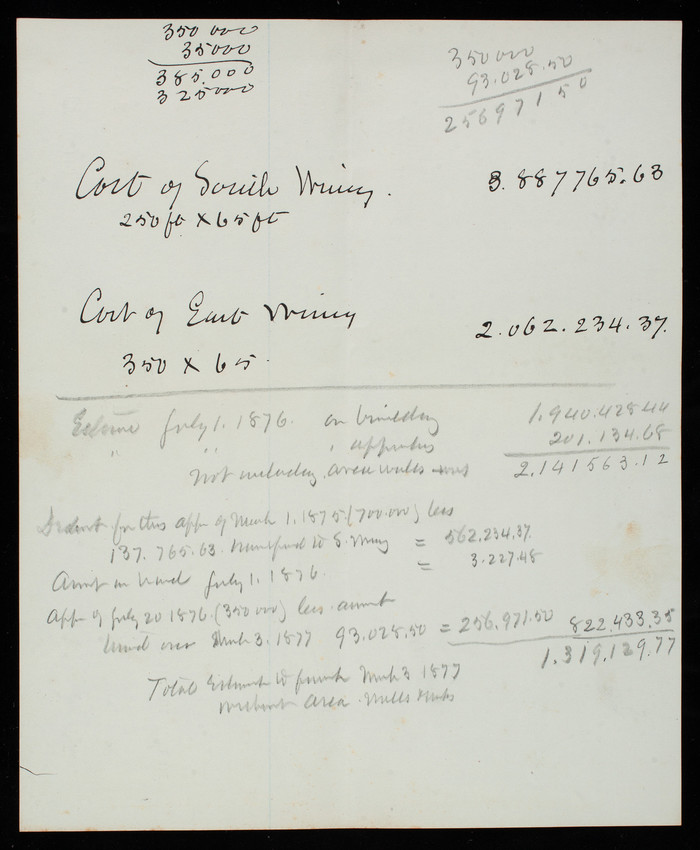 350 000
35000
385.000
325000
350000
93.028.50
256971 50
Cost of South Wing. 3.887765.63
250 ft X 65 ft
Cost of East Wing 2.062.234.37.
350 X 65.
Estime July 1. 1876. on building 1.940.428.44
" " " apparatus 201.134.68
not including area walls 2.141563.12
Deduct for this app of March 1.1875 (700.000) less
137.765.63. transferred to S. Wing = 562.234.37.
Amt on hand July 1. 1876. = 3.227.48
App of July 20 1876. (350 000) less amount
turned over March 3. 1877 93.028.50 = 256.971.50 822.433.35
1.319.129.77
Total Estimate to finish March 3 1877
without area walls